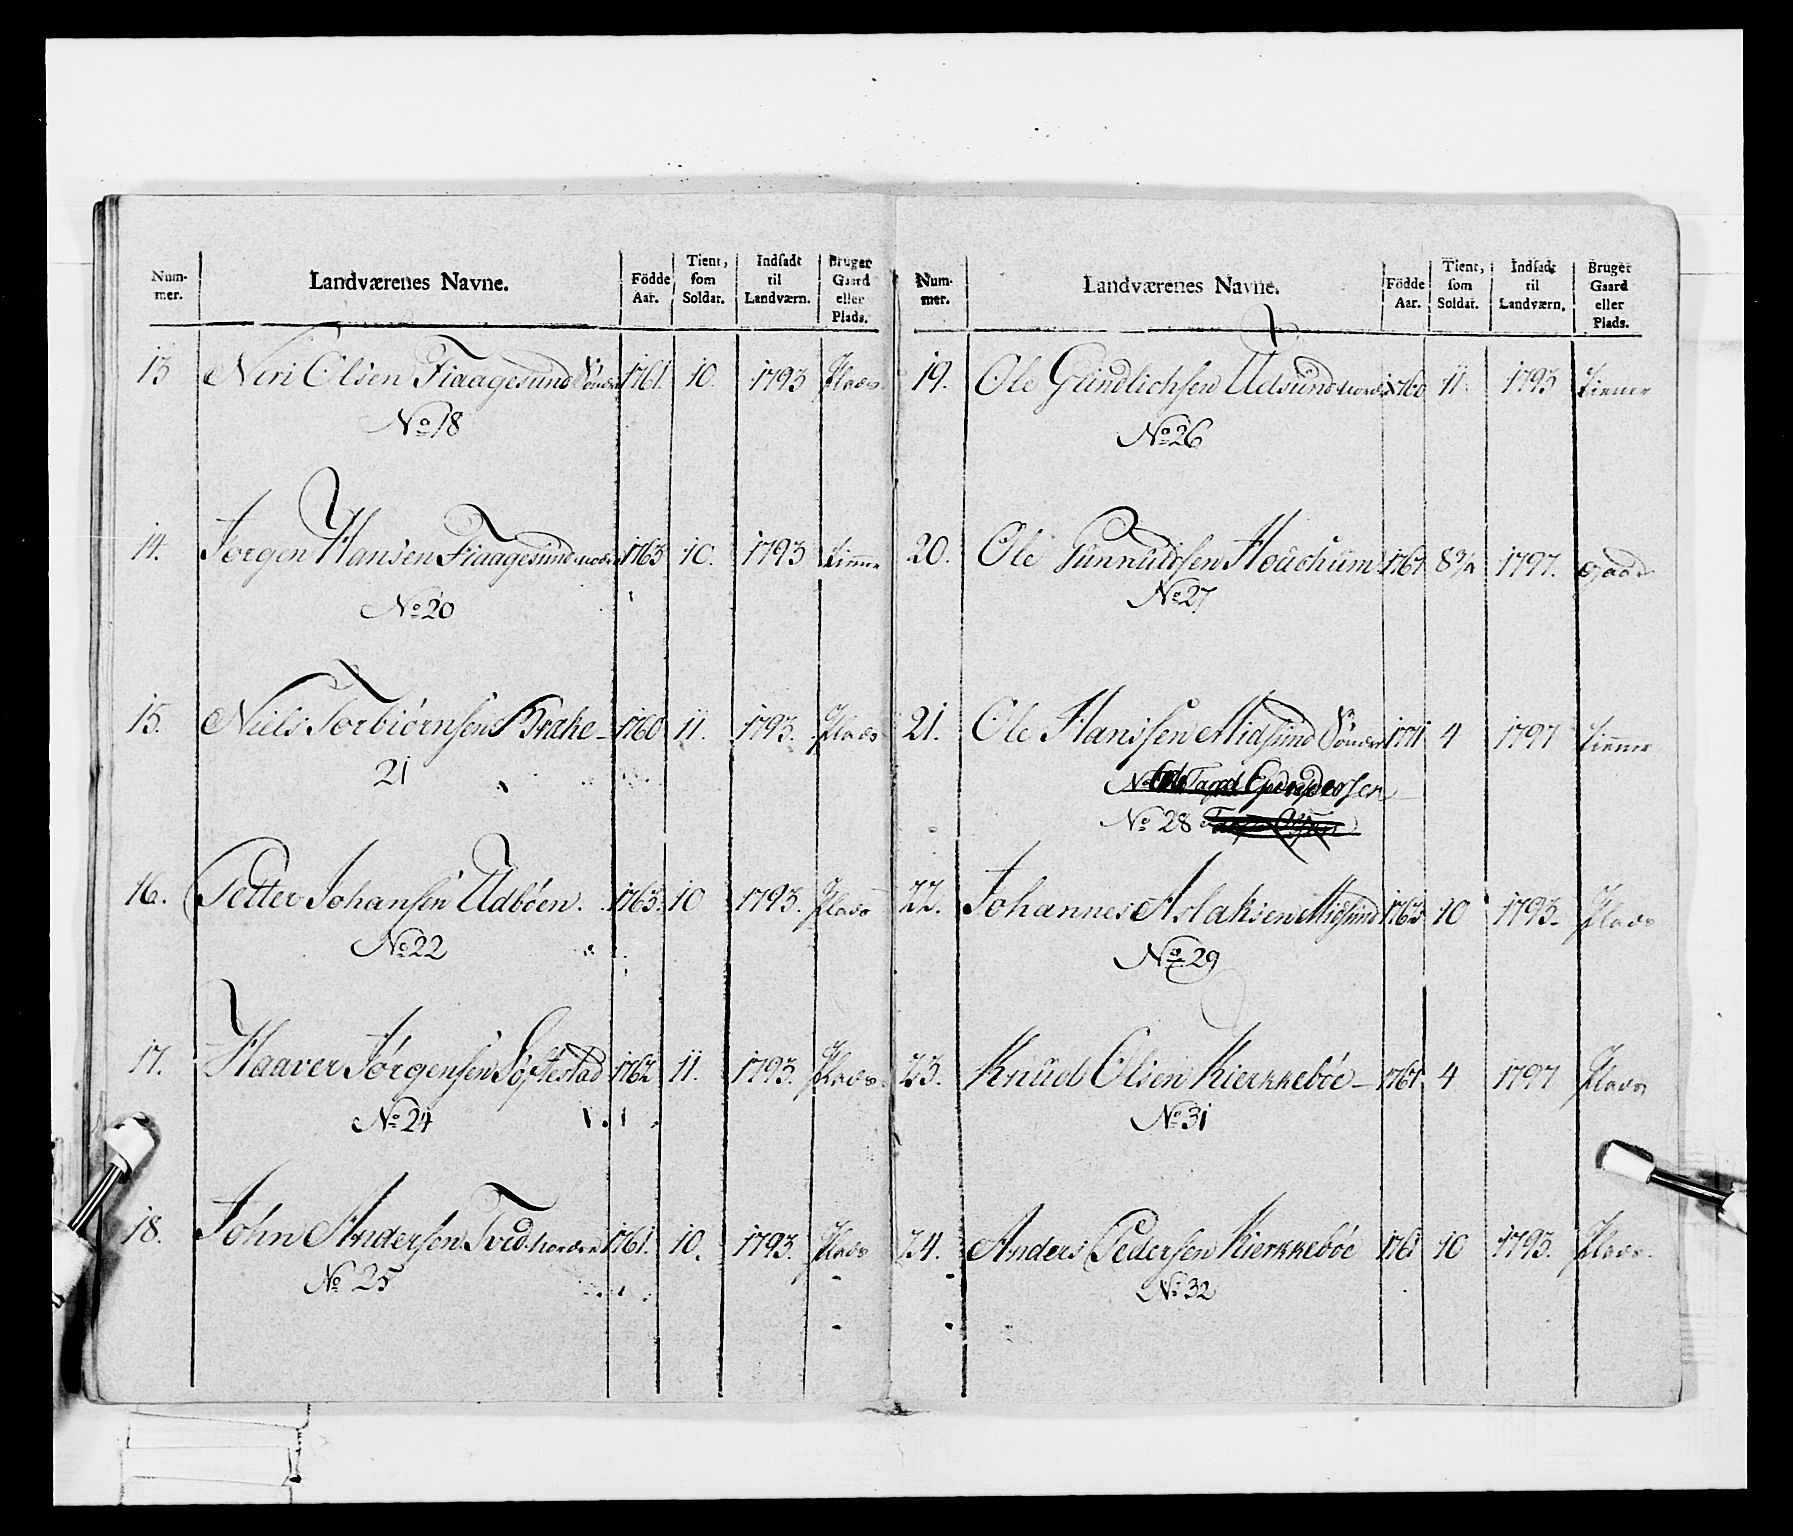 Num-mer. Landværenes Navne. Födde Aar. Tient, som Soldat. Indsadt til Landværn. Bruger Gaard eller Plads.
13 Neri Olsen Fiaagesund Sönder 1761. 10. 1793 Plads
No 18
14. Jorgen Hansen Fiaagesund nordre 1763 10. 1793 tienne
No 20
15. Niels Torbiörnsen Bræke 1760 11. 1793. Plads
21
16. Petter Johansen Udböen. 1763. 10 1793. Plads
No 22
17. Haaver Jörgensen Söftestad 1762 11. 1793. Plads
No 24
18. John Andersen Tved nordre 1761. 10. 1793. Plads
No 25
Num-mer. Landværenes Navne. Födde Aar. Tient, som Soldat. Indsadt til Landværn. Bruger Gaard eller Plads.
19. Ole Gundlichsen Udsund nordre 1760 11. 1793 tienner
No 26
20. Ole Gunnuldsen 1767 8 1797. Gaard
No 27
21. Ole Hanssen Midsund Sönder 1771 4 1797 tienner
No
No 28
22. Johannes Aslaksen Midsund 1763 10 1793. Plads
No 29
23. Knud Olsen Kierkkeböe 1767 4 1797 Plads
No 31
24. Anders Pedersen Kierkkeböe 1761 10 1793. Plads.
No 32